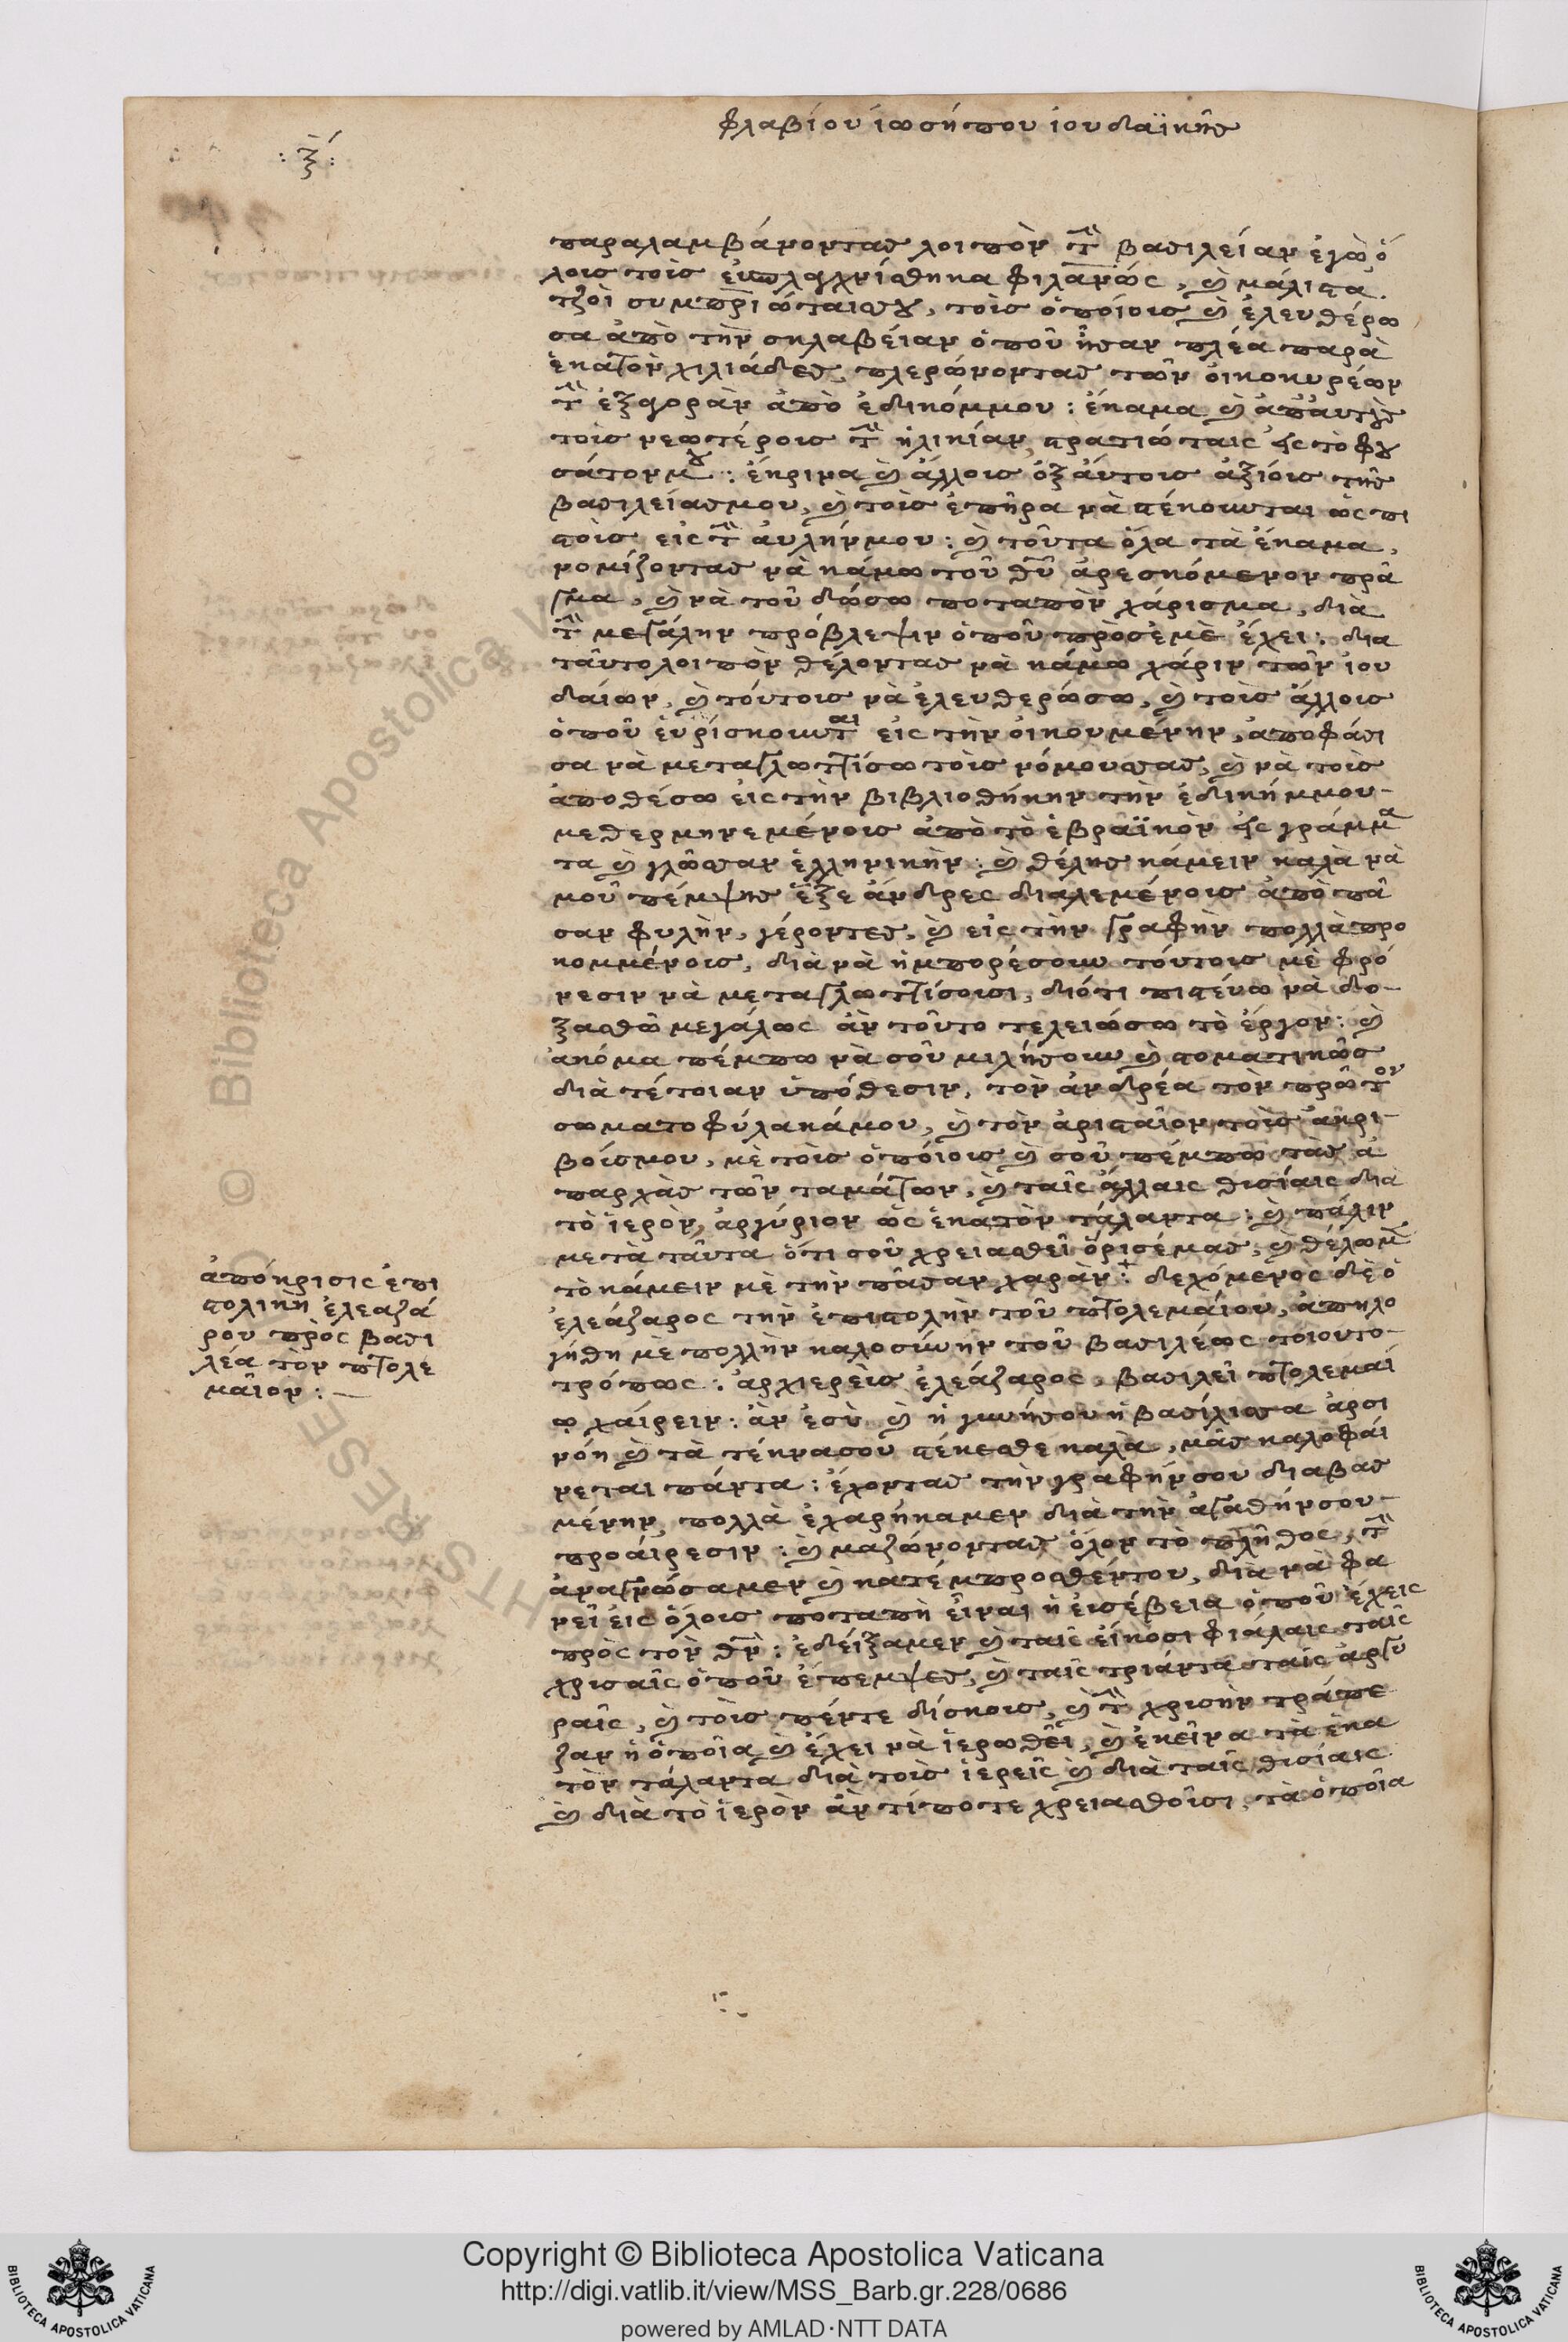 φλαβίου ἰωσήπου ἰουδαϊκῆσ
: ξ́ :
παραλαμβάνοντασ λοιπὸν τὴν βασιλείαν ἐγὼ ὅ
λοισ τοὶσ εὐσπλαχνίσθηκα φιλανως, καὶ μάλιστα
τζοὶ συμπατριώταισου, τοὶσ ὁποίοισ καὶ ἐλευθέρω
σα ἀπὸ τὴν σκλαβείαν ὁποῦ ἦσαν πλέα παρὰ
ἑκατὸν χιλιάδεσ, πλερώνοντασ τῶν οἰκοκυρέων
τὴν ἐξαγορὰν ἀπὸ ἐδικόμμου: ἔκαμα καὶ
τοὶσ νεωτέροισ τὴν ἡλικίαν, στρατιώταις εἰς τὸ φου
σάτον μου: ἔκρινα καὶ ἄλλοισ ὀξάυτοισ ἀξίοισ τῆσ
βασιλείασμου, καὶ τοὶσ ἐπῆρα νὰ στέκουνται ὡς πι
στοὶσ εἰς τὴν ἀυλήνμου: καὶ τοῦτα ὅλα τὰ ἔκαμα,
νομίζοντασ νὰ κάμω τοῦ θῦ ἀρεσκόμενον πρᾶ
γμα, καὶ νὰ τοῦ δώσω ποταπὸν χάρισμα, διὰ
τὴν μεγάλην πρόβλεψιν ὁποῦ πρὸσ ἐμὲ ἔχει: δια
τᾶυτο λοιπὸν θέλοντασ νὰ κάμω χάριν τῶν ἰου
δαίων, καὶ τόυτοισ νὰ ἐλευθερώσω, καὶ τοὶσ ἄλλοισ
ὁποῦ ἑυρίσκουνται εἰς τὴν οἰκουμένην, ἀποφάσι
σα νὰ μεταγλωττίσω τοὶσ νόμουσσασ, καὶ νὰ τοὶσ
ἀποθέσω εἰς τὴν βιβλιοθήκην τὴν ἐδικήμμου-
μεθερμηνεμένοισ ἀπὸ τὸ ἑβραϊκὸν εἰς γράμμα
τα καὶ γλῶσσαν ἑλληνικὴν: καὶ θέλησ κάμειν καλὰ νὰ
μοῦ πέμψησ ἕξε ἄνδρες διαλεμένοισ ἀπὸ πᾶ
σαν φυλὴν, γέροντεσ, καὶ εἰς τὴν γραφὴν πολλὰ προ
κομμένοισ, διὰ νὰ ἠμπορέσουν τόυτοισ μὲ φρό
νεσιν νὰ μεταγλωττίσοισι, διότι πιστέυω νὰ δο-
ξασθῶ μεγάλως ἂν τοῦτο τελειώσω τὸ ἔργον: καὶ
ἀκόμα πέμπω νὰ σοῦ μιλήσουν καὶ στοματικῶσ
διὰ τέτοιαν ὑπόθεσιν, τὸν ἀνδρέα τὸν πρῶτον
σωματοφύλακάμου, καὶ τὸν ἀρισταῖον τοὶσ ἀκρι-
βοίσμου, μὲ τοὶσ ὁπόιοισ καὶ σοῦ πέμπω τὰσ ἀ
παρχὰσ τῶν ταμάτων, καὶ ταῖς ἄλλαις θισίαις διὰ
τὸ ἱερὸν, ἀργύριον ὡς ἑκατὸν τάλαντα: καὶ πάλιν
μετὰ ταῦτα ὅτι σοῦ χρειασθεῖ ὅρισέ μασ, καὶ θέλομεν
τὸ κάμειν μὲ τὴν πᾶσαν χαρὰν: δεχόμενὸς δὲ ὁ
ἐλεάζαρος τὴν ἐπιστολὴν τοῦ πτολεμάιου, ἀπηλο
γήθη μὲ πολλὴν καλοσύνην τοῦ βασιλέως τόιουτο-
τρόπως: ἀρχιερέισ ἐλεάζαρος, βασιλεῖ πτολεμαί
ῳ χαίρειν: ἂν ἐσὺ καὶ ἡ γυνήσου ἡ βασίλισσα ἀρσι
νόη καὶ τὰ τέκνασου στέκεσθε καλὰ, μᾶσ καλοφάι
νεται πάντα: ἔχοντασ τὴν γραφήνσου διαβασ
μένην, πολλὰ ἐχαρήκαμεν διὰ τὴν ἀγαθήνσου-
προάιρεσιν: καὶ μαζώνοντασ ὅλον τὸ πλῆθος, τὴν
ἀναγνώσαμεν καὶ κατέμπροσθέντου, διὰ νὰ φα
νεῖ εἰς ὅλοισ ποταπὴ εἶναι ἡ ἐισέβεια ὁποῦ ἔχεις
πρὸς τὸν θν: ἐδείξαμεν καὶ ταῖς εἴκοσι φιάλαις ταῖς
χρισαῖς ὁποῦ ἔπεμψεσ, καὶ ταῖς τριάντα ταῖς ἀργυ
ραῖς, καὶ τοὶσ πέντε δίσκοισ, καὶ τὴν χρισὴν τράπε
ζαν ἡ ὁποῖα καὶ ἔχει νὰ ἱερωθεῖ, καὶ ἐκεῖνα τὰ ἑκα
τὸν τάλαντα διὰ τοὶσ ἱερεῖς καὶ διὰ ταῖς θισίαις
καὶ διὰ τὸ ἱερὸν ἂν τίποτε χρειασθοῦσι, τὰ ὁποῖα
ἀπόκρισις ἐπι
στολικὴ ἐλεαζά
ρου πρὸς βασι
λέα τὸν πτολε
μαῖον: –
© Biblioteca Apostolica Vaticana
Copyright © Biblioteca Apostolica Vaticana
http://digi.vatlib.it/view/MSS_Barb.gr.228/0686
powered by AMLAD·NTT DATA
BIBLIOTECA APOSTOLICA VATICANA
BIBLIOTECA APOSTOLICA VATICANA